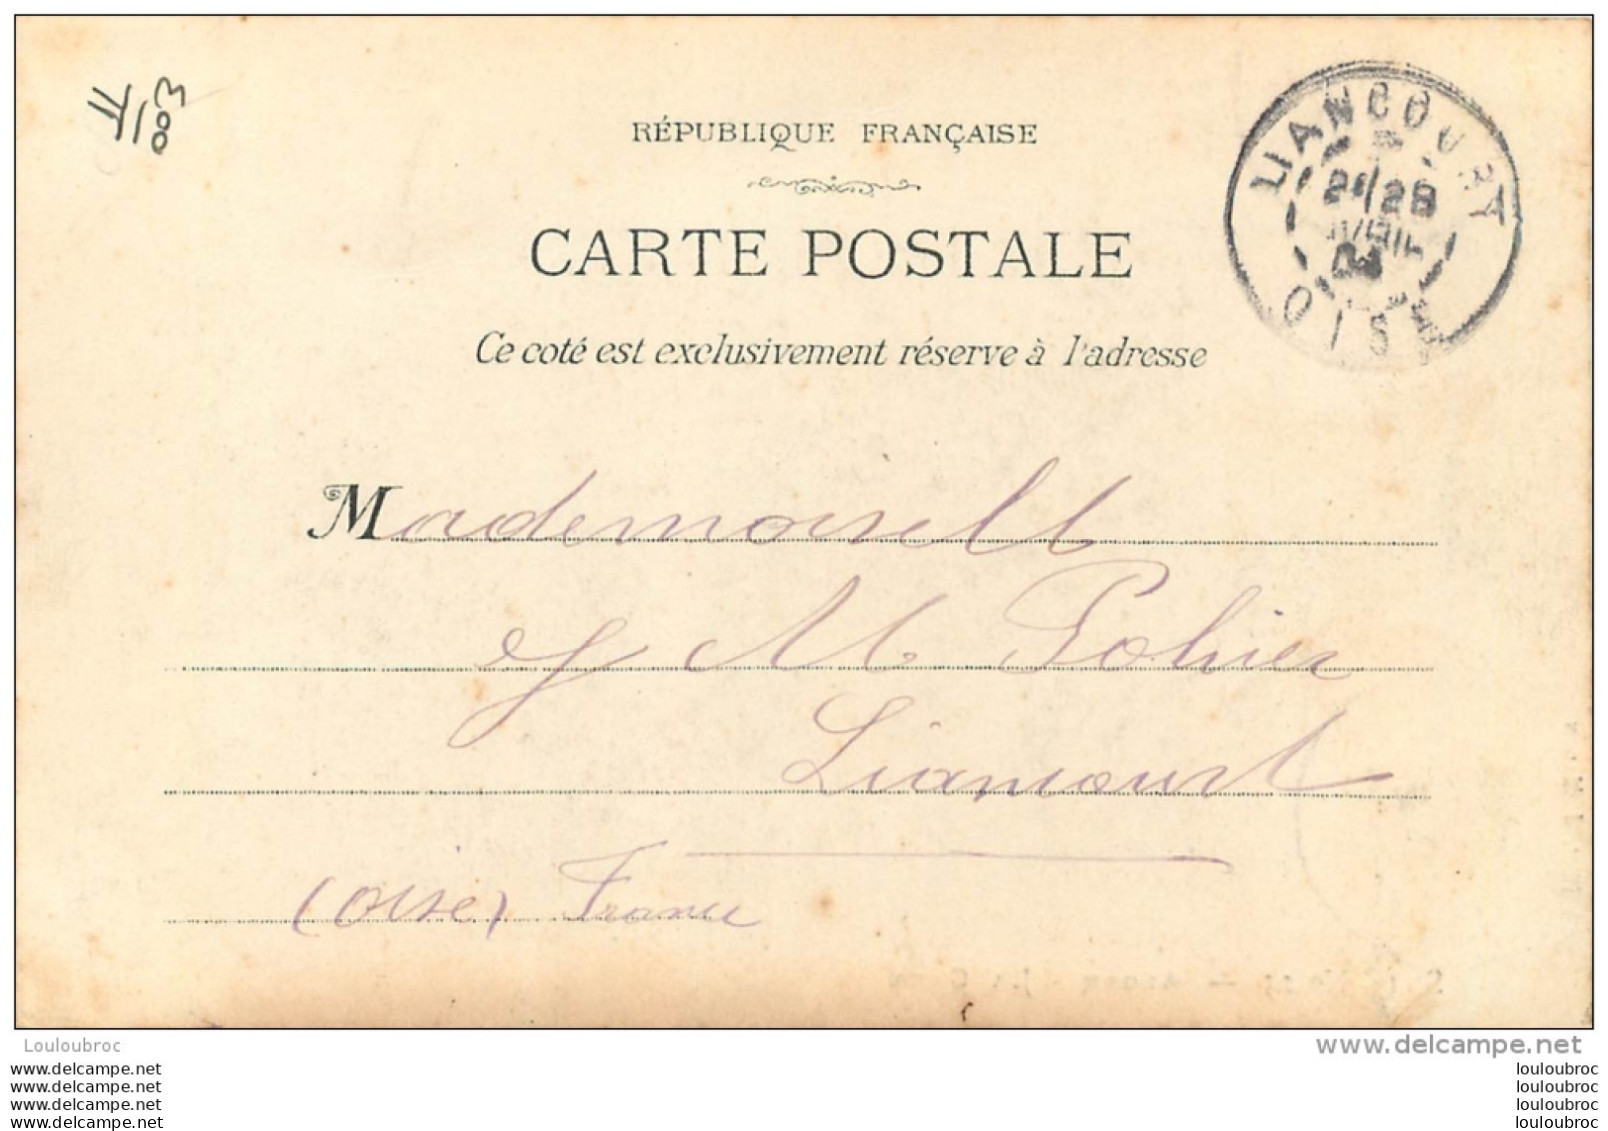 003
RÉPUBLIQUE FRANÇAISE
CARTE POSTALE
Ce coté est exclusivement réservé à l'adresse
LIANCOURT
28
OISE
Mademoiselle
M Pohier
Liancourt
(Oise) France
Louloubroc
www.delcampe.net
www.delcampe.net
www.delcampe.net
www.delcampe.net
www.delcampe.net
louloubroc
louloubroc
louloubroc
louloubroc